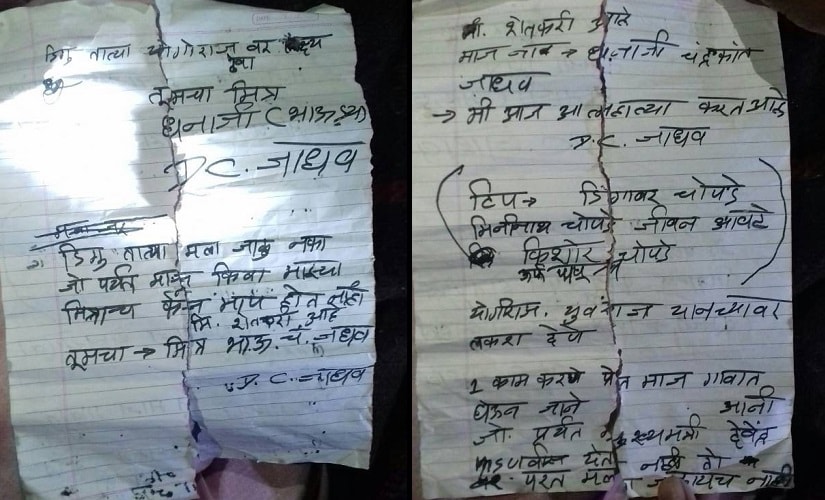 डिगु तात्या योगीराज वर लक्ष्य
ठेवा
तुमचा मित्र
धनाजी (भाऊ
D.C. जाधव
डिगु तात्या मला जाळु नका
जो पर्यंत माझ किंवा माझ्या
मित्राच्य कर्ज माप होत नाही
मि. शेतकरी आहे
तूमचा → मित्र भाऊ. चं. जाधव
D.C. जाधव
मी. शेतकरी आहे
माज नाव → धनाजी चंद्रकांत
जाधव
→ मी आज आत्महात्या करत आहे
D.C. जाधव
टिप → डिगांबर चोपडे
जीवन आवटे
किशोर चोपडे
योगीराज. युवराज यानच्यावर
लकश देणे
1 काम करणे प्रेत माज गावात
घेऊन जाने आनी
जो. पर्यंत मुख्यमंत्री देवेंद्र
फडणवीस येत नाही तो
परत मला जळायच नाही